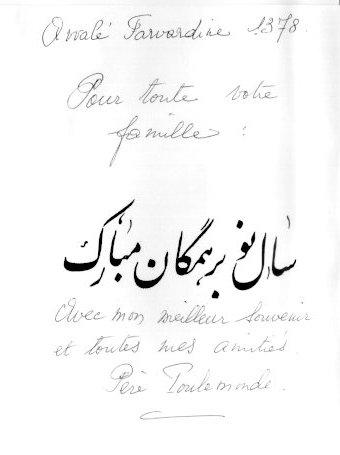 Avalé Farvardine 1378.
Pour toute votre
famille :
سال نو بر همگان مبارک
Avec mon meilleur souvenir
et toutes mes amitiés.
Père Toulemonde.